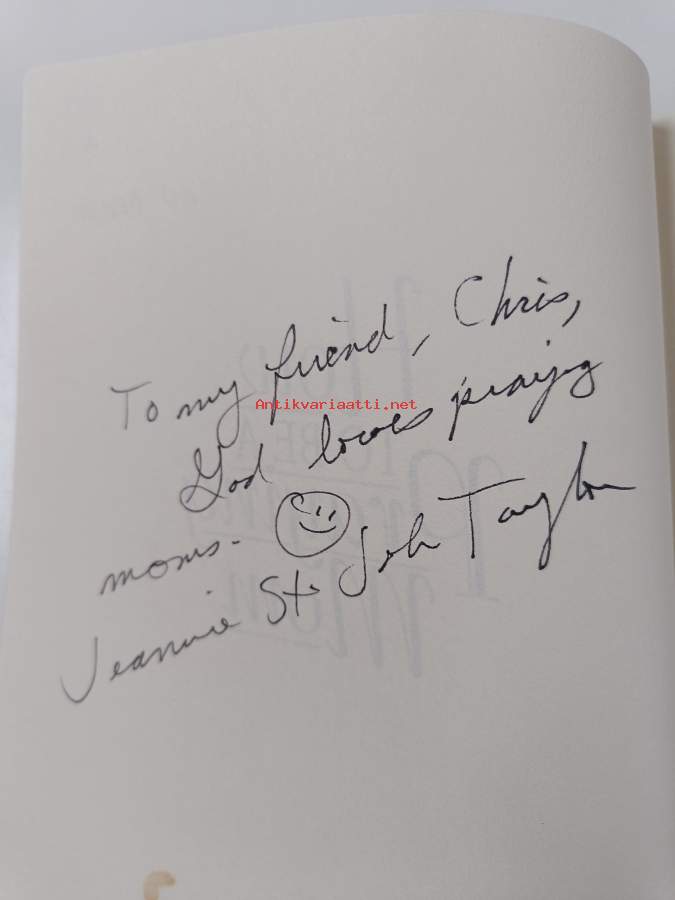 To my friend, Chris,
Antikvariaatti.net
God loves praying
moms.
Jeannie St. John Taylor